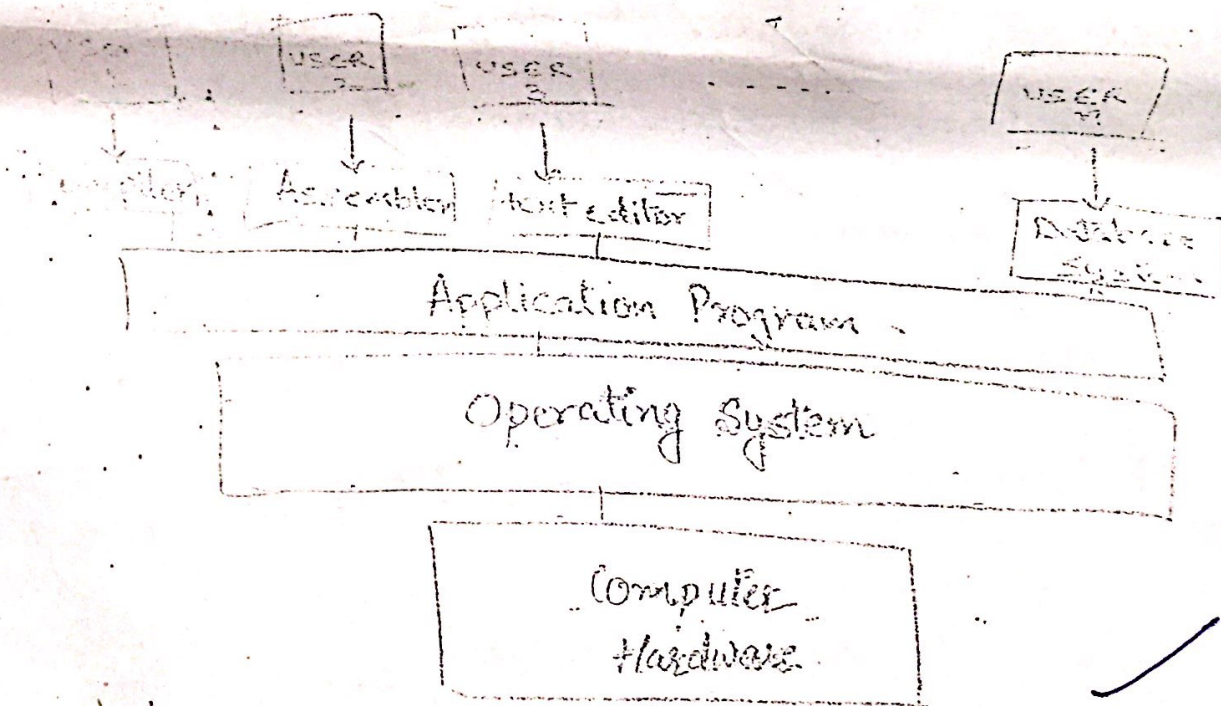 USER
2
USER
3
USER
n
Assembler
text editor
Database
System
Application Program
Operating System
Computer
Hardware